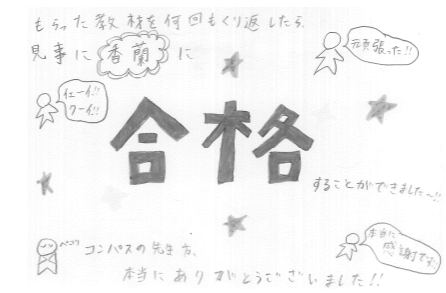 もらった教材を何回もくり返したら、
見事に香蘭に
頑張った!!
イェーイ!!
ワーイ!!
合格
することができました〜!!
ペコリ
コンパスの先生方、
本当に
感謝です!!
本当にありがとうございました!!